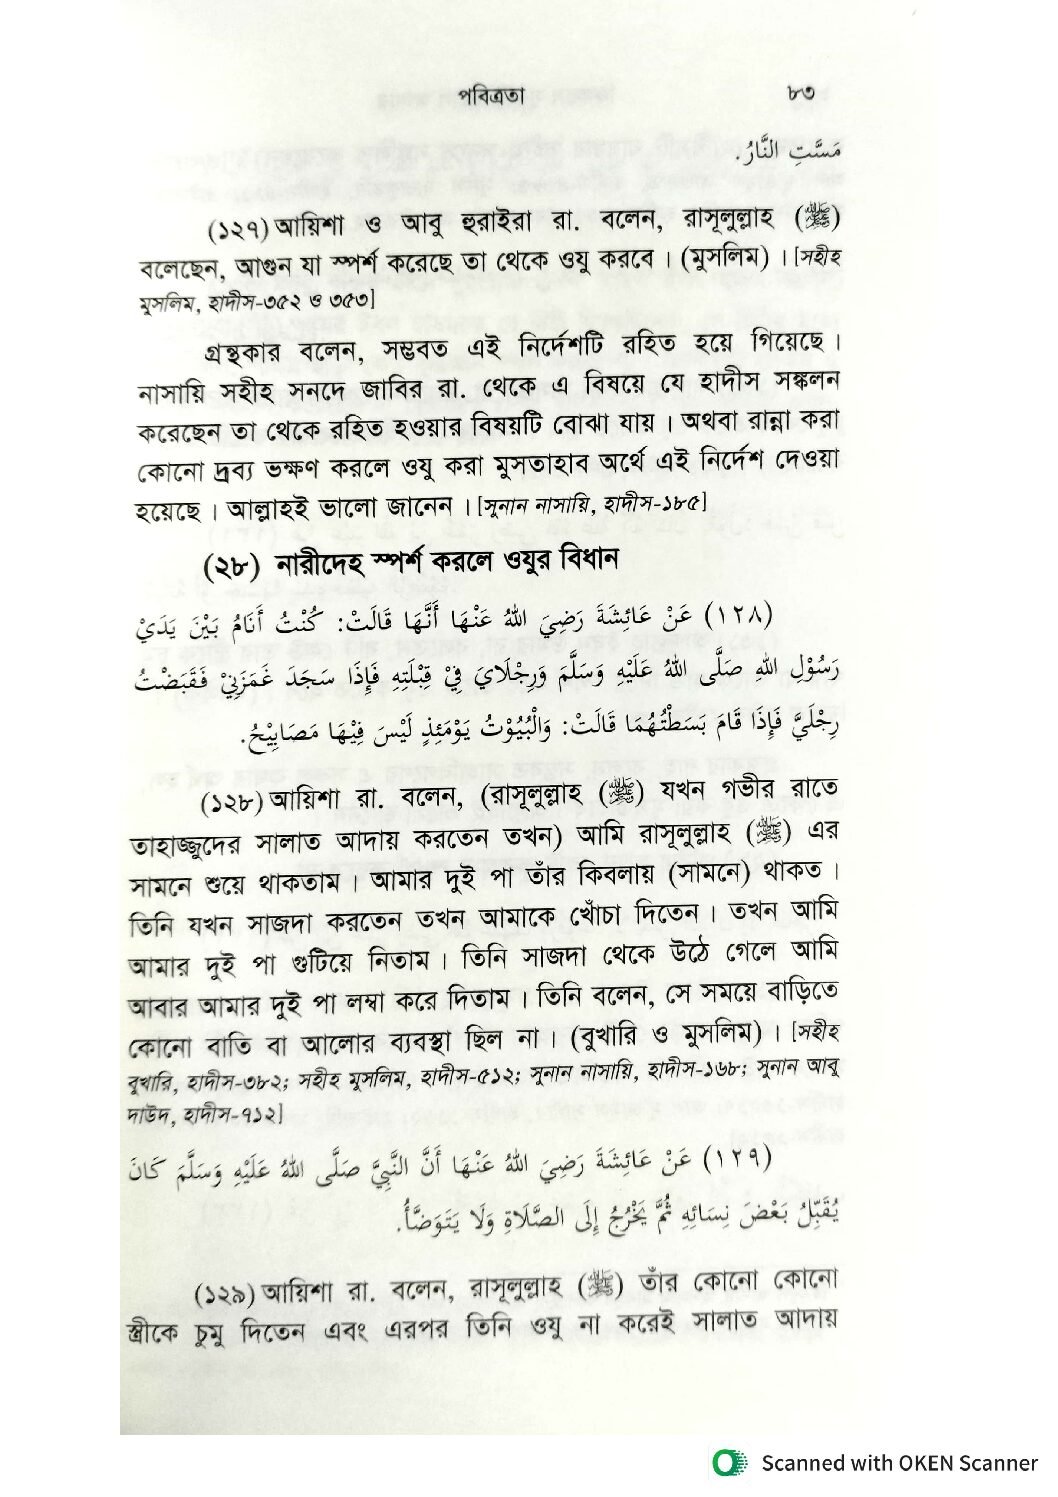 পবিত্রতা ৮৩
مَسَّتِ النَّارُ.
(১২৭) আয়িশা ও আবু হুরাইরা রা. বলেন, রাসূলুল্লাহ (ﷺ)
বলেছেন, আগুন যা স্পর্শ করেছে তা থেকে ওযু করবে। (মুসলিম)। [সহীহ
মুসলিম, হাদীস-৩৫২ ও ৩৫৩]
গ্রন্থকার বলেন, সম্ভবত এই নির্দেশটি রহিত হয়ে গিয়েছে।
নাসায়ি সহীহ সনদে জাবির রা. থেকে এ বিষয়ে যে হাদীস সঙ্কলন
করেছেন তা থেকে রহিত হওয়ার বিষয়টি বোঝা যায়। অথবা রান্না করা
কোনো দ্রব্য ভক্ষণ করলে ওযু করা মুসতাহাব অর্থে এই নির্দেশ দেওয়া
হয়েছে। আল্লাহই ভালো জানেন। [সুনান নাসায়ি, হাদীস-১৮৫]
(২৮) নারীদেহ স্পর্শ করলে ওযুর বিধান
(١٢٨) عَنْ عَائِشَةَ رَضِيَ اللهُ عَنْهَا أَنَّهَا قَالَتْ: كُنْتُ أَنَامُ بَيْنَ يَدَيْ
رَسُوْلِ اللهِ صَلَّى اللهُ عَلَيْهِ وَسَلَّمَ وَرِجْلَايَ فِيْ قِبْلَتِهِ فَإِذَا سَجَدَ غَمَزَنِيْ فَقَبَضْتُ
رِجْلَيَّ فَإِذَا قَامَ بَسَطْتُهُمَا قَالَتْ: وَالْبُيُوْتُ يَوْمَئِذٍ لَيْسَ فِيْهَا مَصَابِيْحُ.
(১২৮) আয়িশা রা. বলেন, (রাসূলুল্লাহ (ﷺ) যখন গভীর রাতে
তাহাজ্জুদের সালাত আদায় করতেন তখন) আমি রাসূলুল্লাহ (ﷺ) এর
সামনে শুয়ে থাকতাম। আমার দুই পা তাঁর কিবলায় (সামনে) থাকত।
তিনি যখন সাজদা করতেন তখন আমাকে খোঁচা দিতেন। তখন আমি
আমার দুই পা গুটিয়ে নিতাম। তিনি সাজদা থেকে উঠে গেলে আমি
আবার আমার দুই পা লম্বা করে দিতাম। তিনি বলেন, সে সময়ে বাড়িতে
কোনো বাতি বা আলোর ব্যবস্থা ছিল না। (বুখারি ও মুসলিম)। [সহীহ
বুখারি, হাদীস-৩৮২; সহীহ মুসলিম, হাদীস-৫১২; সুনান নাসায়ি, হাদীস-১৬৮; সুনান আবু
দাউদ, হাদীস-৭১২]
(١٢٩) عَنْ عَائِشَةَ رَضِيَ اللهُ عَنْهَا أَنَّ النَّبِيَّ صَلَّى اللهُ عَلَيْهِ وَسَلَّمَ كَانَ
يُقَبِّلُ بَعْضَ نِسَائِهِ ثُمَّ يَخْرُجُ إِلَى الصَّلَاةِ وَلَا يَتَوَضَّأُ.
(১২৯) আয়িশা রা. বলেন, রাসূলুল্লাহ (ﷺ) তাঁর কোনো কোনো
স্ত্রীকে চুমু দিতেন এবং এরপর তিনি ওযু না করেই সালাত আদায়
Scanned with OKEN Scanner